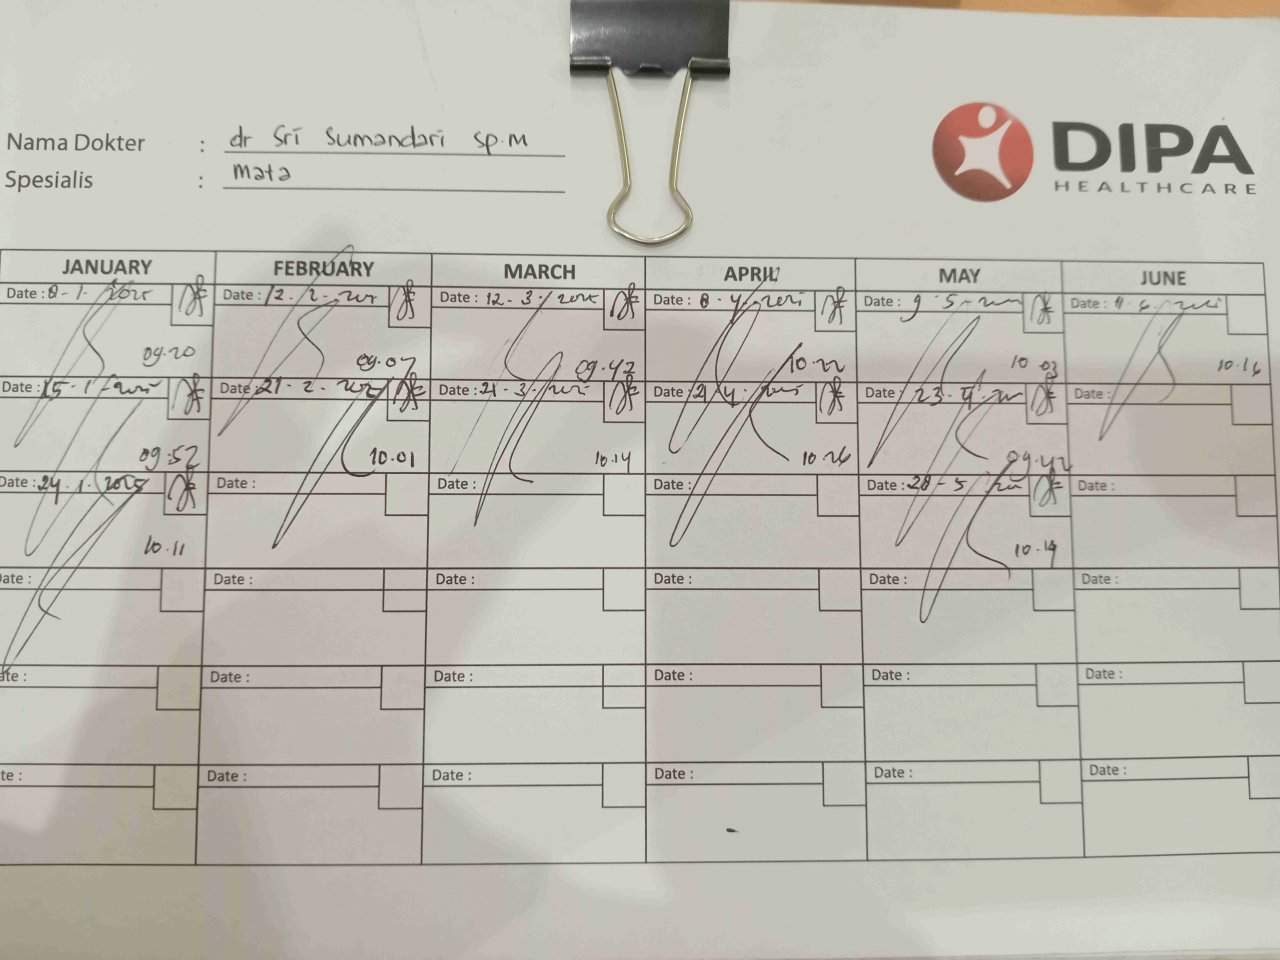 Nama Dokter : dr Sri Sumandari Sp.M
Spesialis : Mata
DIPA
HEALTHCARE
JANUARY FEBRUARY MARCH APRIL MAY JUNE
Date : 8 - 1 - 2025 Date : 12 - 2 - 2025 Date : 12 - 3 - 2025 Date : 8 - 4 - 2025 Date : 9 - 5 - Date :
09.20 09.07 09.42 10.22 10 03 10.16
Date : 15 - 1 - 2025 Date : 21 - 2 - 2025 Date : 21 - 3 - 2025 Date : 21 4 - 2025 Date : 23 - Date :
09.52 10.01 10.14 10.26 09.42
Date : 24 . 1 . 2025 Date : Date : Date : Date : 28 - 5 Date :
10.11 10.19
ate : Date : Date : Date : Date : Date :
ate : Date : Date : Date : Date : Date :
te : Date : Date : Date : Date : Date :